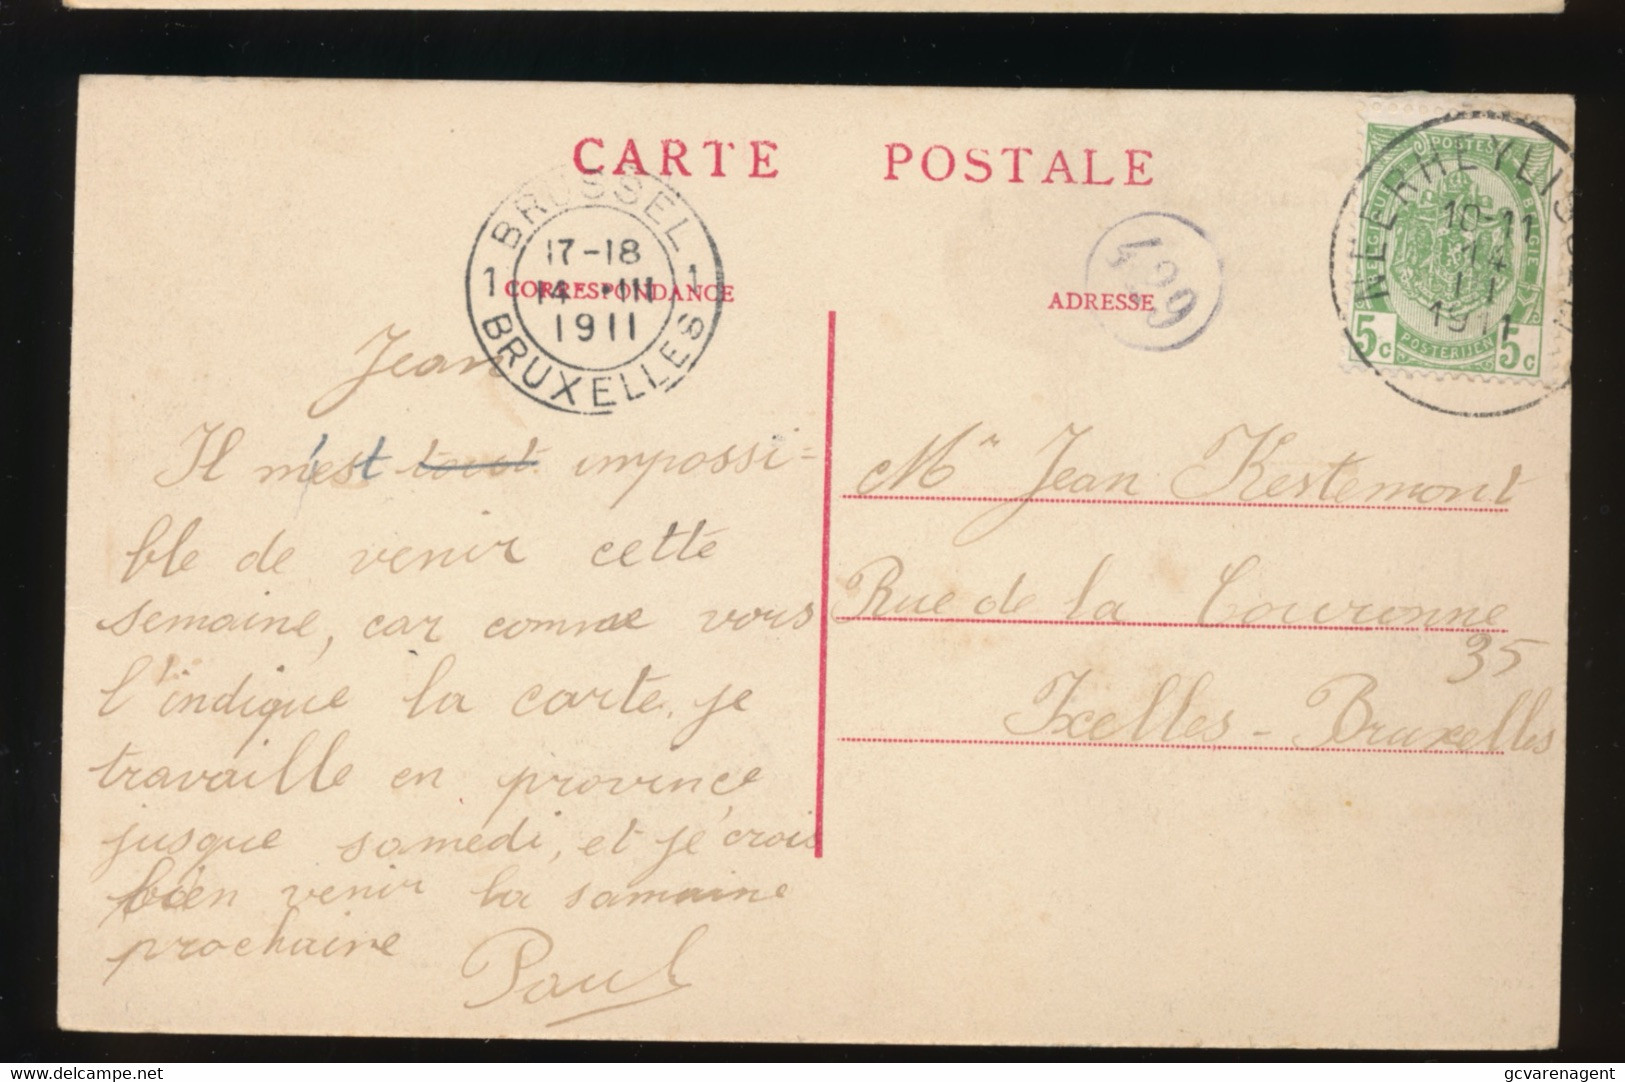 CARTE POSTALE
BRUSSEL
17-18
14 III
1911
1 1
BRUXELLES
CORRESPONDANCE
ADRESSE
499
NEERHEYLISSEM
10-11
14
III
1911
POSTES
BELGIQUE BELGIE
POSTERIJEN
5c 5c
Jean
Il m'est tout impossi=
ble de venir cette
semaine, car comme vous
l'indique la carte, je
travaille en province
jusque samedi, et je crois
bien venir la samaine
prochaine
Paul
Mr Jean Kestemont
Rue de la Couronne
35
Ixelles - Bruxelles
Delcampe.net
gcvarenagent